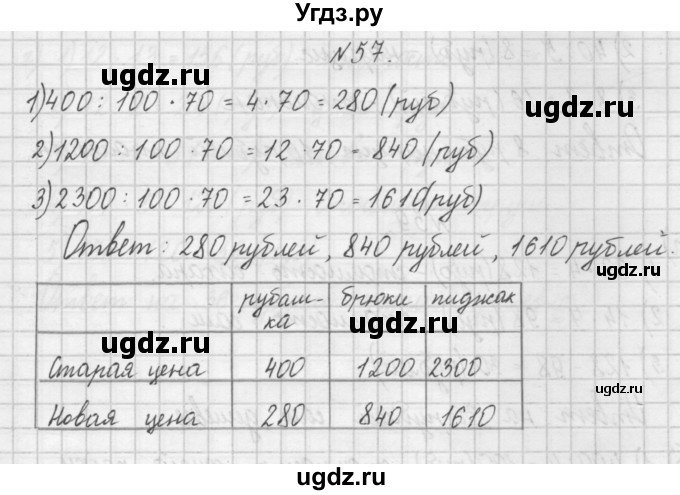 Угдз.ру
№57.
1) 400 : 100 · 70 = 4 · 70 = 280 (руб)
2) 1200 : 100 · 70 = 12 · 70 = 840 (руб)
3) 2300 : 100 · 70 = 23 · 70 = 1610 (руб)
Ответ : 280 рублей, 840 рублей, 1610 рублей.
рубаш- брюки пиджак
ка
Старая цена 400 1200 2300
Новая цена 280 840 1610
ugdz.ru ugdz.ru
ugdz.ru ugdz.ru
ugdz.ru ugdz.ru
ugdz.ru ugdz.ru
ugdz.ru